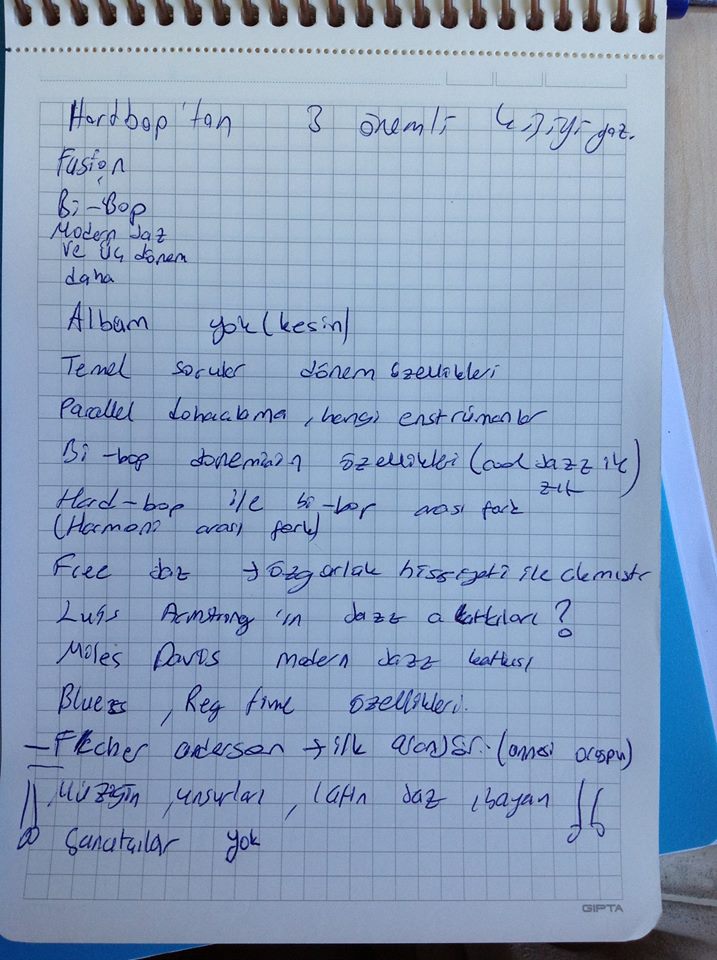 Hardbop'tan 3 önemli kişiyi yaz.
Fusion
Bi-Bop
Modern Jaz
ve üç dönem
daha
Albüm yok (kesin)
Temel sorular dönem özellikleri
Parallel doğaçlama, hangi enstrümanlar
Bi-bop döneminin özellikleri (cool Jazz ile
zıt)
Hard-bop ile bi-bop arası fark
(Harmoni arası fark)
Free jaz → özgürlük hissiyatı ile
Luis Armstrong'ın Jazz a katkıları?
Miles Davis modern jazz katkısı
Blues, Reg time özellikleri.
– Flecher anderson → ilk aranjör. (annesi orospu)
!! Müziğin unsurları, latin jaz, bayan !!
Sanatçılar yok
GIPTA